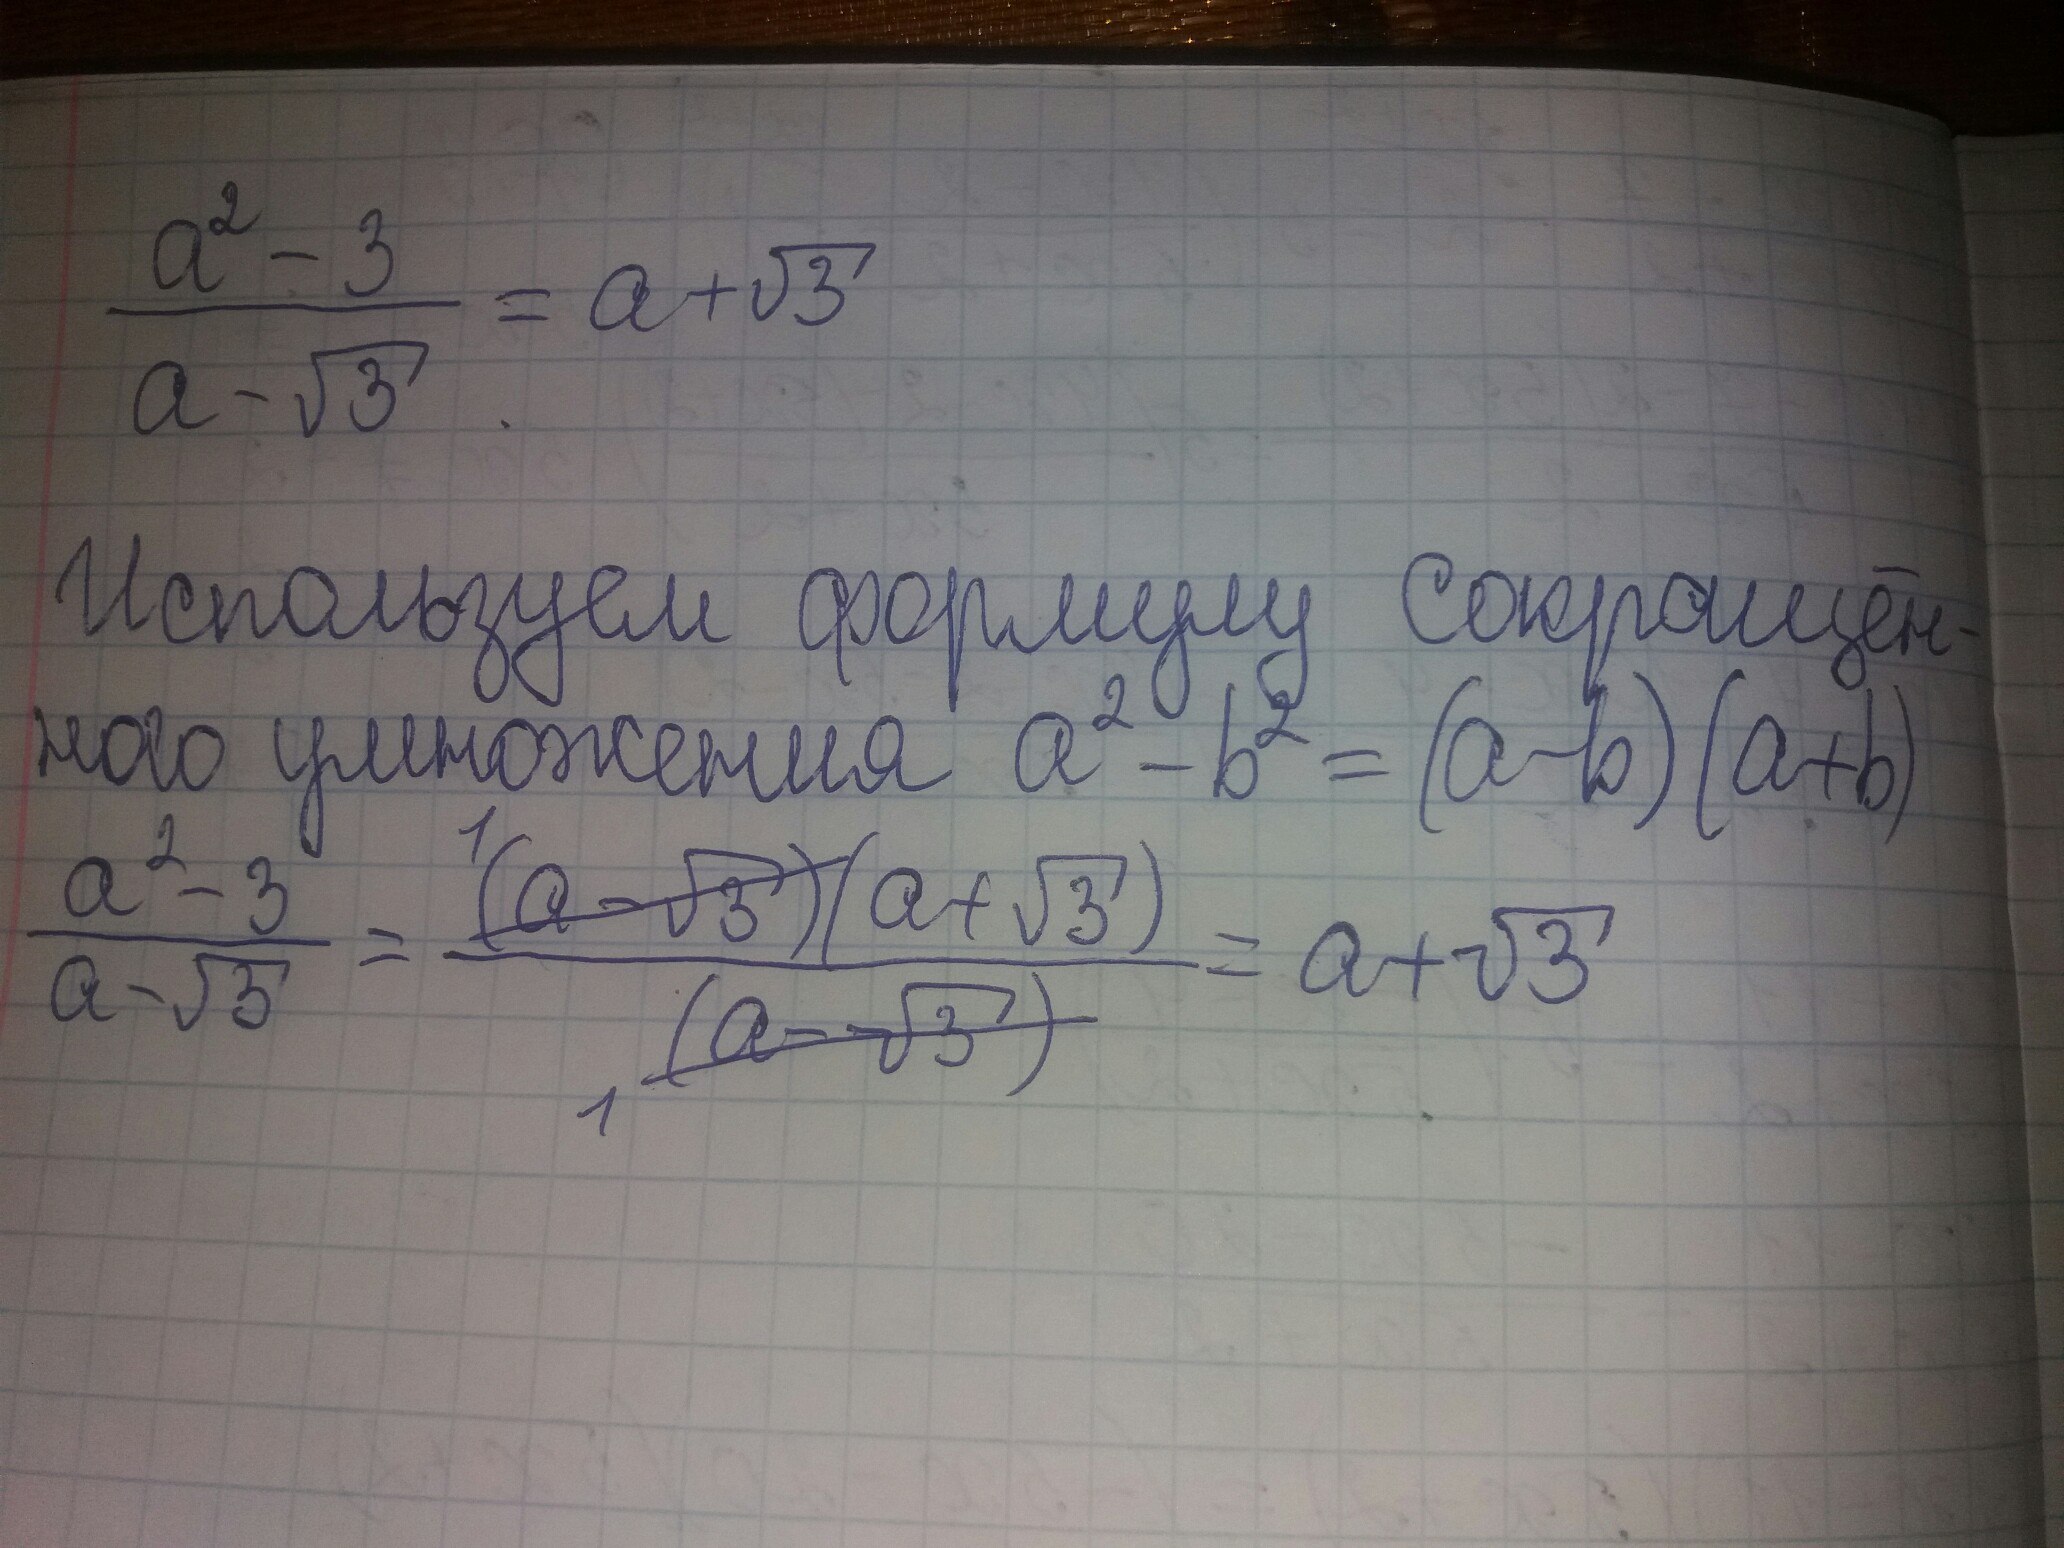 a² - 3 / a - √3 = a + √3
Используем формулу сокращён-
ного умножения a² - b² = (a - b)(a + b)
a² - 3 / a - √3 = ¹(a - √3)(a + √3) / ₁(a - √3) = a + √3